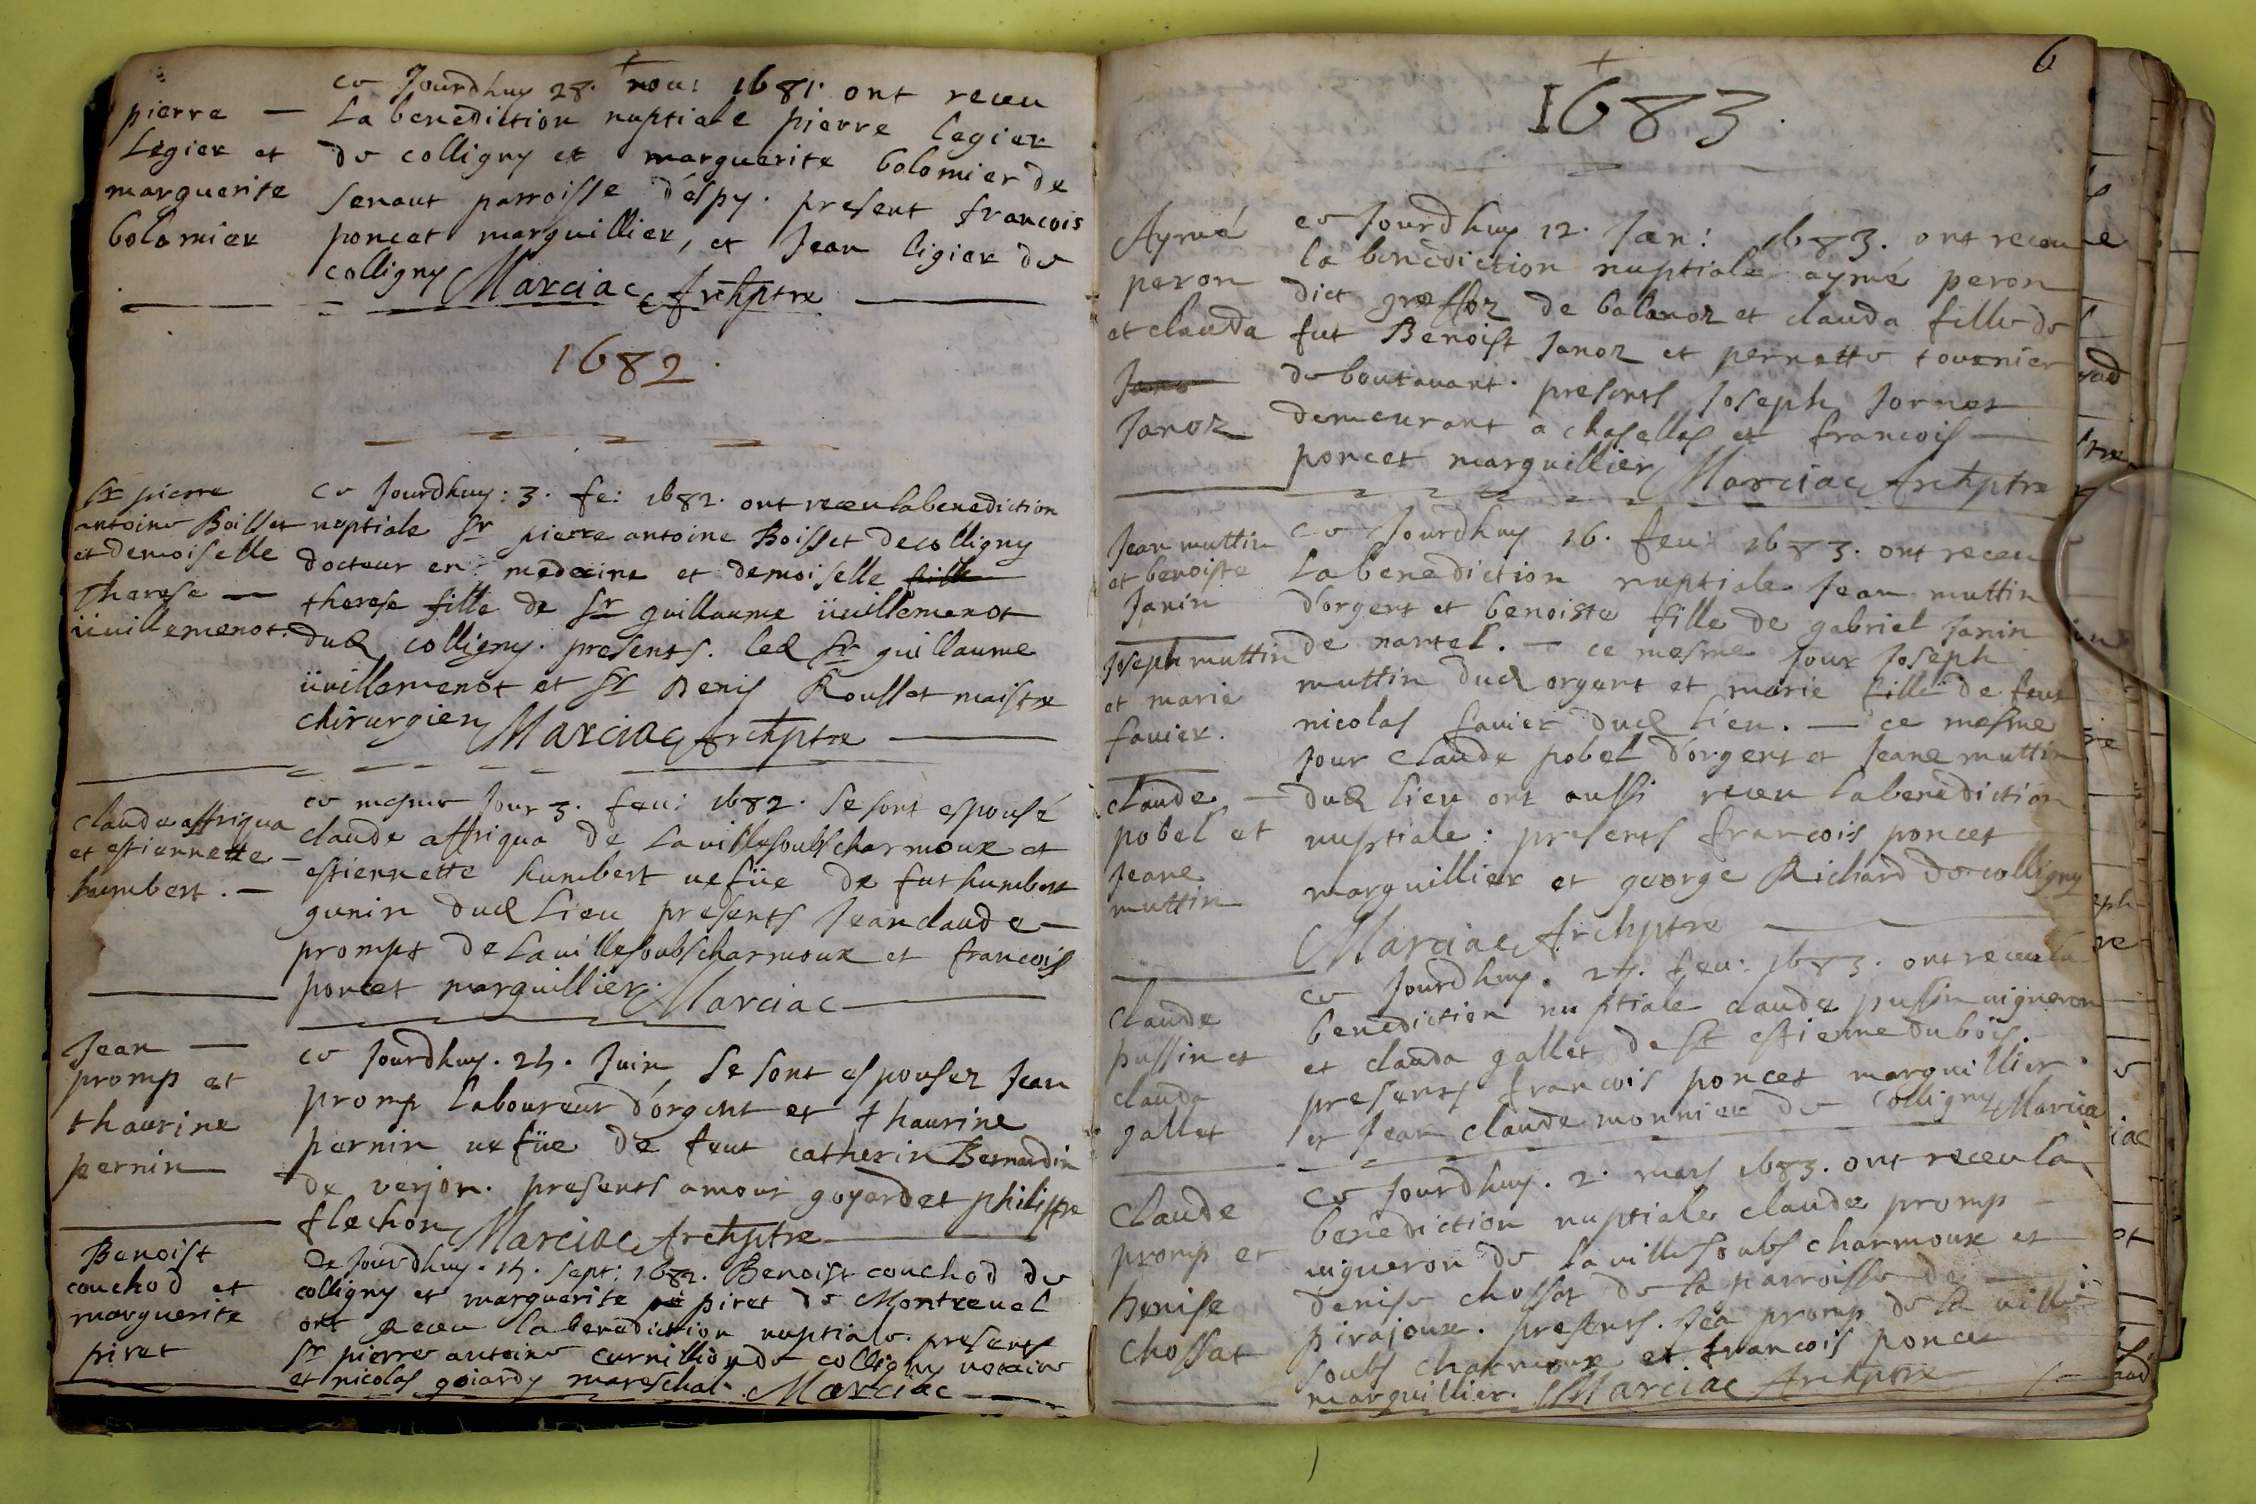 pierre —
Legier et
marguerite
bolomier
ce Jourdhuy 28. nou: 1681. ont receu
La benediction nuptiale pierre legier
de colligny et marguerite bolomier de
senaut parroisse d'espy. present francois
poncet marguillier, et Jean ligier de
colligny Marciac Archptre
1682.
Sr pierre
antoine Boisset
et demoiselle
Therese —
üuillemenot.
ce Jourdhuy: 3. fe: 1682. ont receu la benediction
nuptiale Sr pierre antoine Boisset de colligny
docteur en medecine et demoiselle fille
therese fille de Sr guillaume üuillemenot
dud colligny. presents. led Sr guillaume
üuillemenot et Sr Denis Rousset maistre
chirurgien Marciac Archptre
claude affriqua
et estiennette —
humbert. —
ce mesme Jour 3. feu: 1682. se sont espousé
claude affriqua de La uille soubs charmoux et
estiennette humbert uefüe de fut humbert
gunin dud Lieu presents Jean claude —
prompt de La uille soubs charmoux et francois
poncet marguillier. Marciac
Jean —
promp et
thaurine
pernin
ce Jourdhuy. 24. Juin se sont espousez Jean
promp laboureur d'orgent et thaurine
pernin uefüe de feut catherin Bernardin
de verjon. presents amour goyardet philippe
flechon Marciac Archptre
Benoist
couchod et
marguerite
piret
Ce Jourdhuy. 14. sept: 1682. Benoist couchod de
colligny et marguerite pe piret de Montreuel
ont receu la benediction nuptiale. presents
Sr pierre antoine curnillion de colligny notaire
et nicolas goiardy mareschal. Marciac
6
1683.
Aymé
peron
et clauda
Jano
Janoz
ce Jourdhuy 12. Jan: 1683. ont receu
la benediction nuptiale aymé peron
dict greffoz de balanoz et clauda fille de
fut Benoist Janoz et pernette tournier
de boutauant. presents Joseph Jornet
demeurant a chaselles et francois —
poncet marguillier Marciac Archptre
Jean muttin
et benoiste
Janin
ce Jourdhuy 16. feu: 1683. ont receu
La benediction nuptiale Jean muttin
d'orgent et benoiste fille de gabriel Janin
de nantel. — ce mesme Jour Joseph
Joseph muttin
et marie
fauier.
muttin dud orgent et marie fille de feut
nicolas fauier dud Lieu. — ce mesme
Jour claude pobel d'orgent et Jeane muttin
claude —
pobel et
Jeane
muttin
dud Lieu ont aussi receu la benediction
nuptiale: presents francois poncet
marguillier et george Richard de colligny
Marciac Archptre
claude
pussin et
clauda
gallet
ce Jourdhuy. 24. feu: 1683. ont receu la
benediction nuptiale claude pussin uigneron
et clauda gallet de st estienne du bois
presents francois poncet marguillier.
et Jean claude monnier de Colligny Marcia
Claude
promp et
Denise
chossat
ce Jourdhuy. 2. mars 1683. ont receu la
benediction nuptiale claude promp —
uigneron de La uille soubs charmoux et
denise chossat de la parroisse de —
pirajoux. presents. Jea promp de la uille
soubs charmoux et francois ponce
marguillier. Marciac Archptre